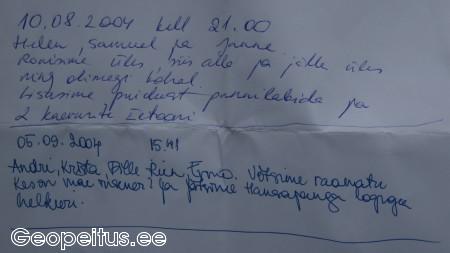 10.08.2004 kell 21.00
Helen, Samuel ja Janne
Ronisime üles, siis alla ja jälle üles
ning olimegi kohal.
Lisasime puidust pannilabida ja
2 kaevurite Estooni
05.09.2004 15.41
Andri, Krista, Ülle Rein, Egmo. Võtsime raamatu
Kes on mac risener? ja jätsime Hansapanga logoga
helkuri.
Geopeitus.ee